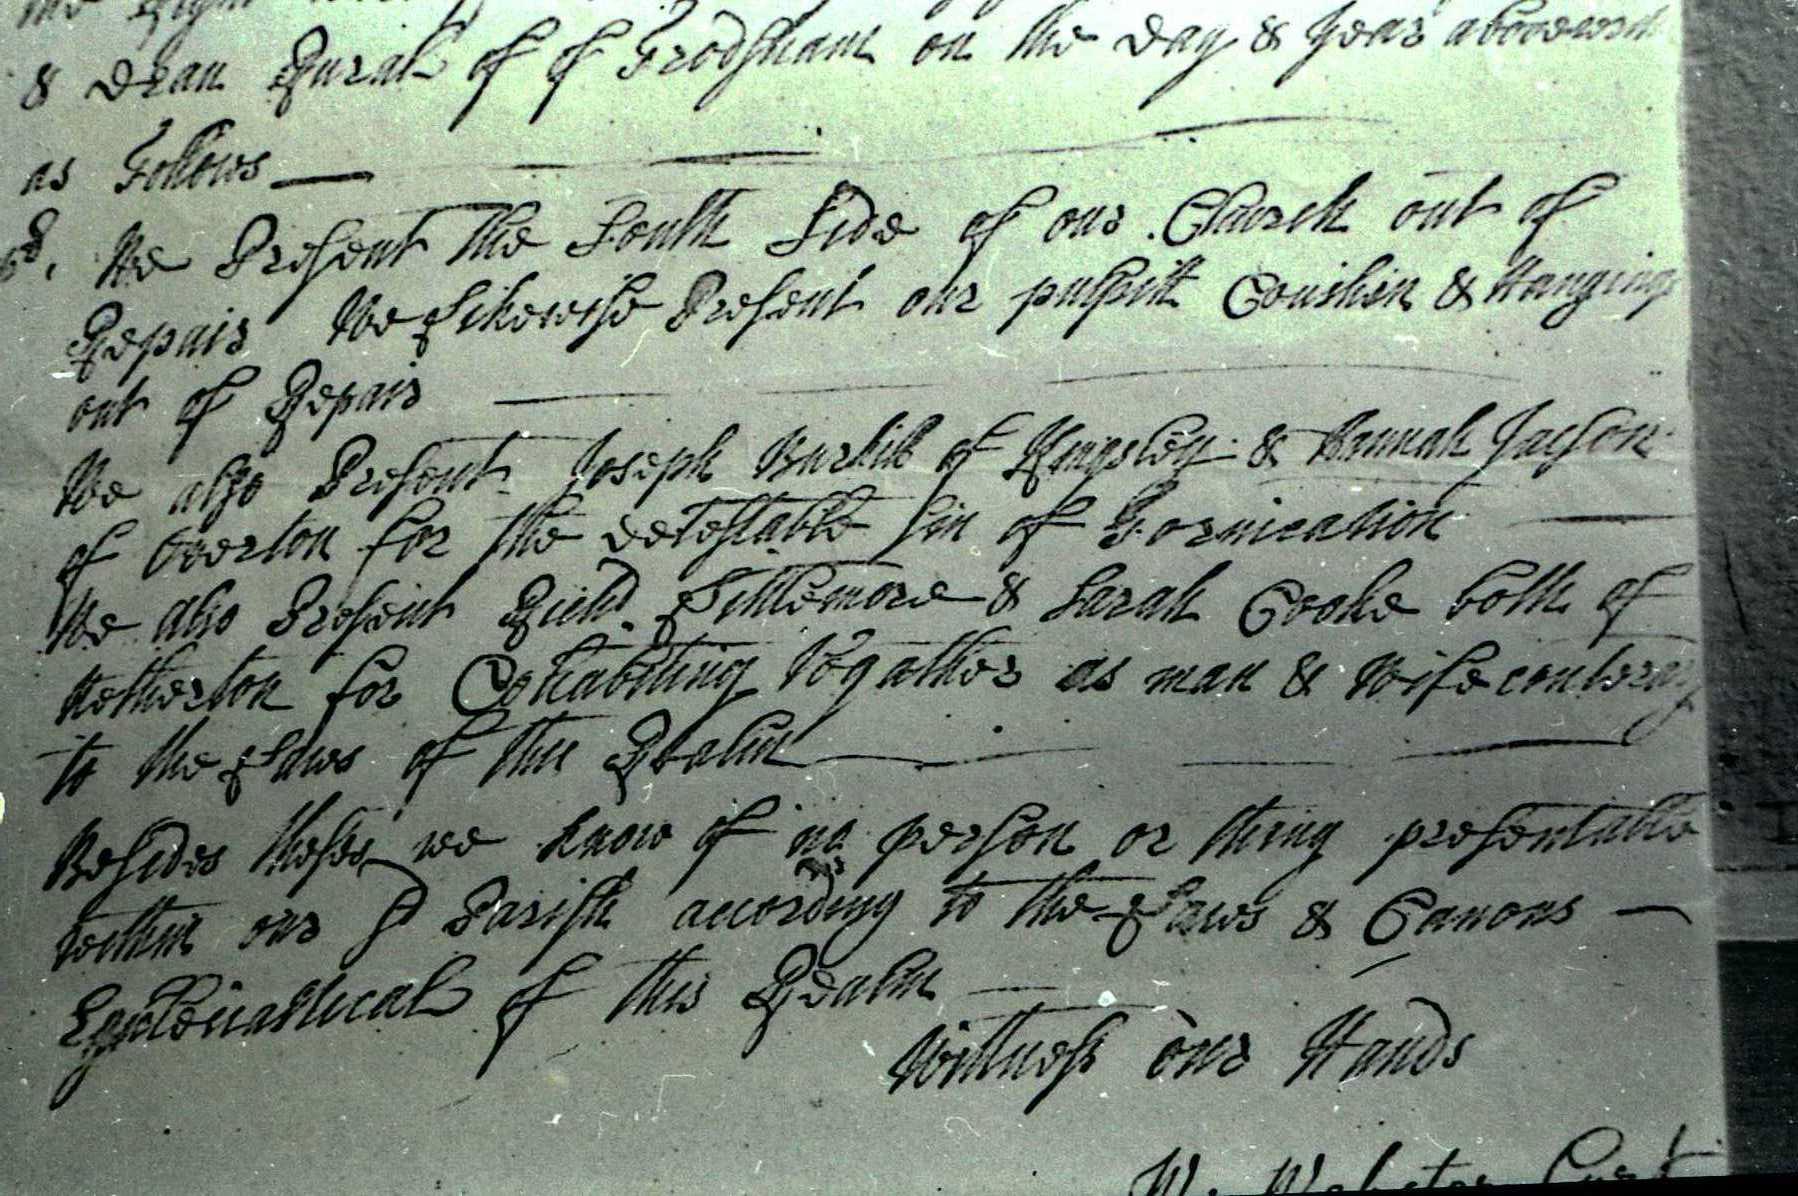 the Right
& Dean Rural of of Frodsham on the Day & Year abovewrit
as Follows
We Present the South Side of our Church out of
Repair We Likewise Present our pulpitt Coushen & Hangings
out of Repair
We also Present Joseph Burhill of Kingsley & Hannah Jacson
of Overton for the detestable sin of Fornication
We also Present Richd. Littlemore & Sarah Cooke both of
Netherton for Cohabiting Togather as man & Wife contrary
to the Laws of this Realm
Besides theses we know of no person or thing presentable
within our sd Parish according to the Laws & Canons
Ecclesiasticall of this Realm
Wittness our Hands
W. Webster Curt